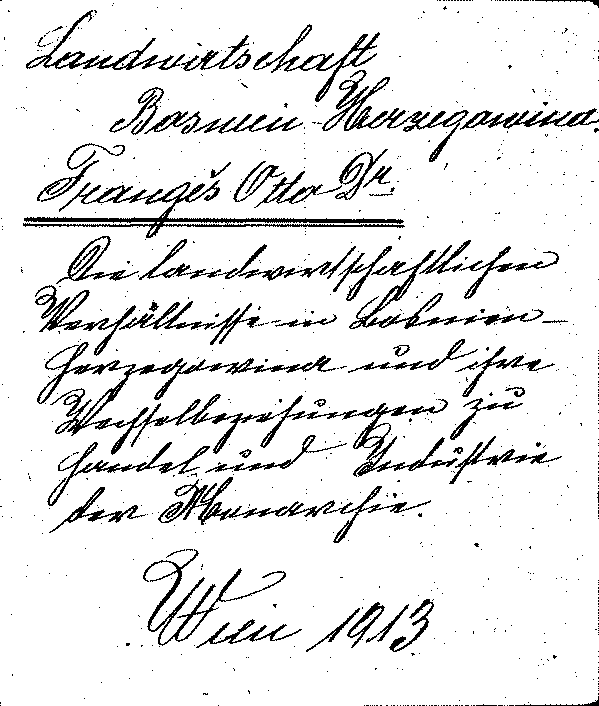 Landwirtschaft
Bosnien-Herzegowina.
Frangeš Otto Dr.
Die landwirtschaftlichen
Verhältnisse in Bosnien-
Herzegowina und ihre
Wechselbeziehungen zu
Handel und Industrie
der Monarchie.
Wien 1913